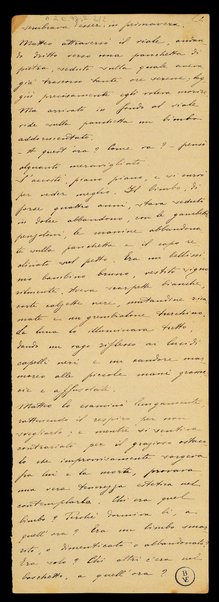 sembrava esser in primavera.
Matteo attraversò il viale, andan
do dritto verso una panchetta di
pietra, seduto sulla quale aveva
già trascorso tante ore serene; lag
giù precisamente egli voleva morire.
Ma arrivato in fondo al viale
vide sulla panchetta un bimbo
addormentato.
A quest'ora? Come va? - pensò
alquanto meravigliato.
S'accostò, piano, piano, e si curvò
a veder meglio. Il bimbo, di
forse quattro anni, stava seduto
in dolce abbandono, con le gambette
penzoloni, le manine abbandona
te sulla panchetta e il capo re
clinato sul petto. Era un bellissi
mo bambino bruno, vestito signo
rilmente, aveva scarpette bianche,
corte calzette nere, mutandine rica
mate e un grembialone turchino.
La luna lo illuminava tutto,
dando un vago riflesso ai lucidi
capelli neri e un candore mar
moreo alle piccole mani grasso
cie e affusolate.
Matteo lo esaminò lungamente
rattenendo il respiro per non
svegliarlo: mentre si sentiva
contrariato per il grazioso ostaco
lo che improvvisamente sorgeva
fra lui e la morte, provava
una vera tenerezza estetica nel
contemplarlo. Chi era quel
bimbo? Perché dormiva lì, a
quell'ora? Era un bimbo smar
rito, o dimenticato o abbandonato?
Era solo? Chi altri c'era nel
boschetto, a quell'ora?